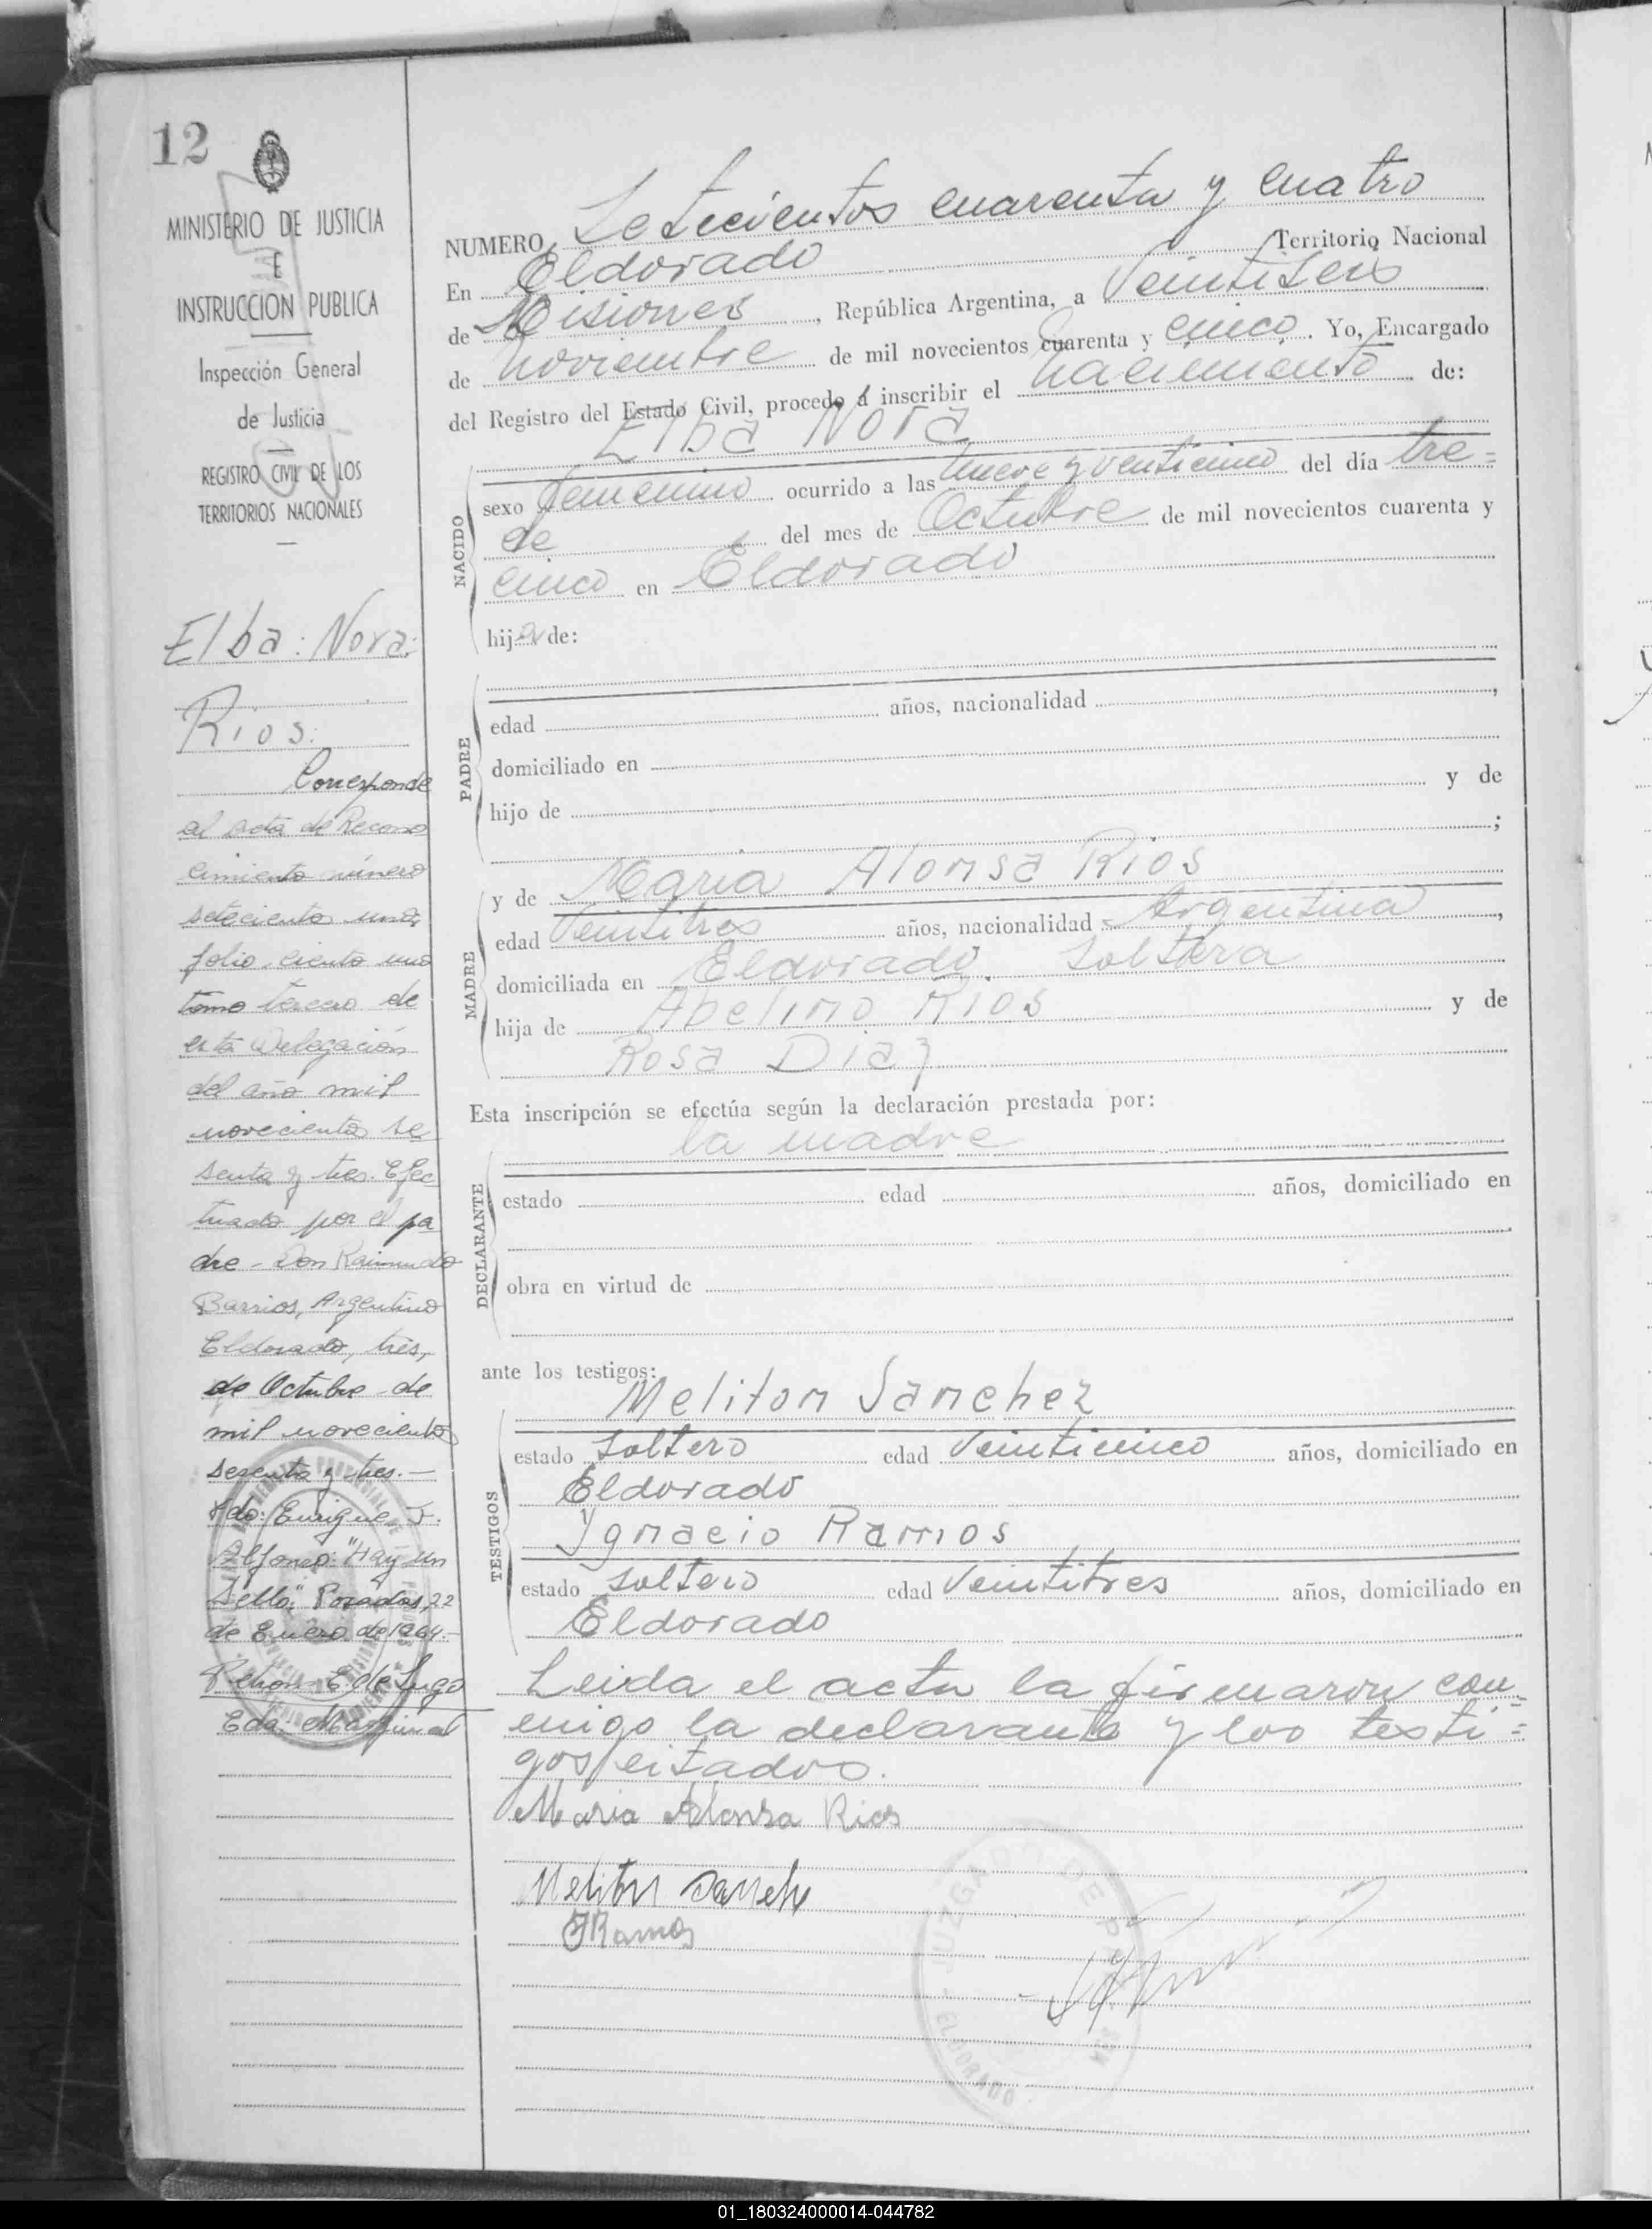 12
MINISTERIO DE JUSTICIA
E
INSTRUCCION PUBLICA
Inspección General
de Justicia
REGISTRO CIVIL DE LOS
TERRITORIOS NACIONALES
Elba: Nora:
Rios:
Corresponde
al acta de Recono
cimiento número
setecientos uno,
folio, ciento uno
tomo tercero de
esta Delegación
del año mil
novecientos se
senta y tres. Efec
tuado por el pa
dre - Don Raimundo
Barrios, Argentino
Eldorado, tres,
de Octubre de
mil novecientos
sesenta y tres.—
Fdo: Enrique J.
Alfonso: "Hay un
Sello": Posadas, 22
de Enero de 1964.-
E. de Lugo
Eda: Marginal
NUMERO Setecientos cuarenta y cuatro
En Eldorado Territorio Nacional
de Misiones, República Argentina, a Veintiseis
de noviembre de mil novecientos cuarenta y cinco. Yo, Encargado
del Registro del Estado Civil, procedo a inscribir el nacimiento de:
Elba Nora
NACIDO
sexo femenino ocurrido a las nueve y venticinco del día tre=
ce del mes de Octubre de mil novecientos cuarenta y
cinco en Eldorado
hija de:
PADRE
edad años, nacionalidad ,
domiciliado en
hijo de y de
;
MADRE
y de Maria Alonsa Rios
edad Veintitres años, nacionalidad Argentina,
domiciliada en Eldorado. Soltera
hija de Abelino Rios y de
Rosa Diaz
Esta inscripción se efectúa según la declaración prestada por:
la madre
DECLARANTE
estado edad años, domiciliado en
obra en virtud de
ante los testigos:
Meliton Sanchez
TESTIGOS
estado Soltero edad Veinticinco años, domiciliado en
Eldorado
Ygnacio Ramos
estado soltero edad Veintitres años, domiciliado en
Eldorado
Leida el acta la firmaron con=
migo la declarante y los testi=
gos citados.
Maria Alonsa Rios
Meliton Sanche
JRamos
JUZGADO DE PAZ
ELDORADO
01_180324000014-044782